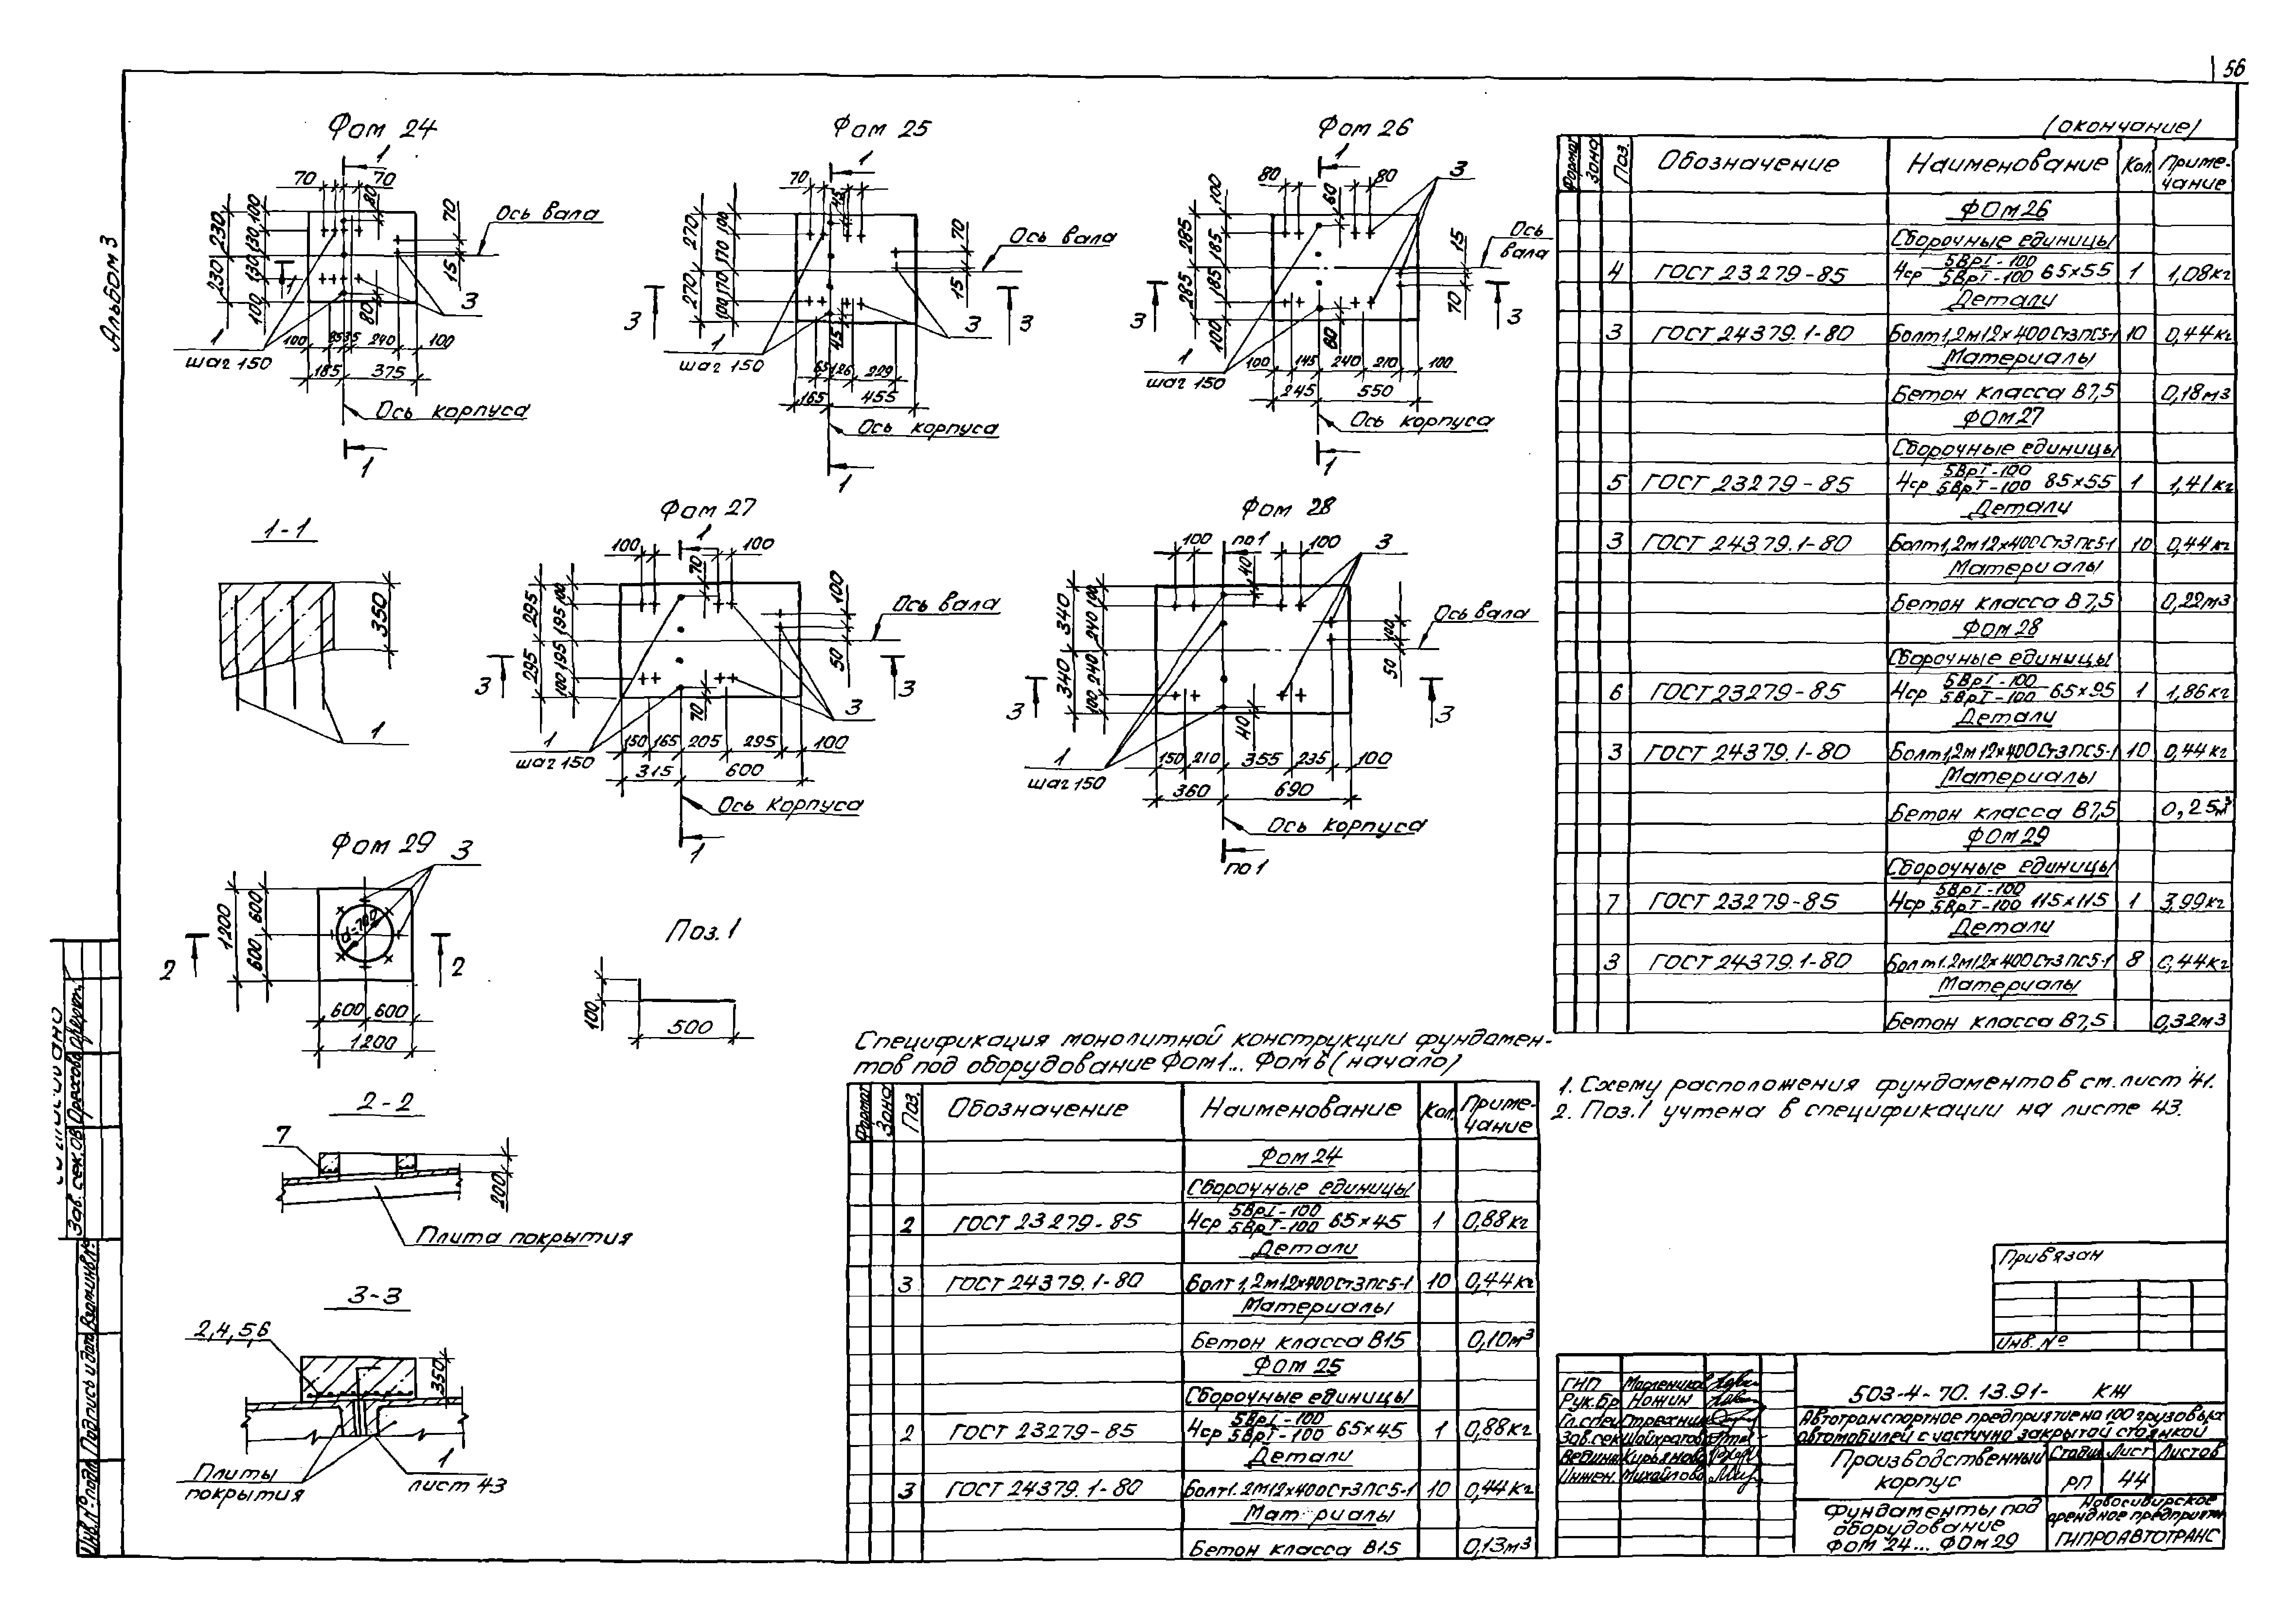 56
Альбом 3
Фом 24
1
70
70
80
230
230
100
130
130
100
70
15
Ось вала
1
3
80
1
шаг 150
100
85
35
240
100
185
375
Ось корпуса
1
Фом 25
1
70
45
270
270
100
170
170
100
70
15
Ось вала
3
3
3
1
шаг 150
45
65
126
229
165
455
Ось корпуса
1
Фом 26
1
80
80
3
60
100
285
285
185
185
100
15
70
Ось
вала
3
3
1
шаг 150
100
145
240
210
100
245
550
Ось корпуса
1
1-1
350
1
Фом 27
1
100
100
70
295
295
100
195
195
100
100
50
Ось вала
3
3
3
1
шаг 150
70
150
165
205
295
100
315
600
Ось корпуса
1
Фом 28
100
по 1
100
3
40
340
340
100
240
240
100
100
50
Ось вала
3
3
1
шаг 150
40
150
210
355
235
100
360
690
Ось корпуса
по 1
Фом 29
3
1200
600
600
2
2
600
600
1200
Поз. 1
100
500
2-2
7
200
Плита покрытия
3-3
2,4,5,6
350
Плиты
покрытия
1
лист 43
(окончание)
Формат Зона Поз. Обозначение Наименование Кол. Приме-
чание
ФОм 26
Сборочные единицы
4 ГОСТ 23279-85 4ср 5ВрI-100/5ВрI-100 65×55 1 1,08кг
Детали
3 ГОСТ 24379.1-80 Болт 1,2м12×400 Ст3пс5-1 10 0,44кг
Материалы
Бетон класса В7,5 0,18м3
ФОм 27
Сборочные единицы
5 ГОСТ 23279-85 4ср 5ВрI-100/5ВрI-100 85×55 1 1,41кг
Детали
3 ГОСТ 24379.1-80 Болт 1,2м12×400 Ст3пс5-1 10 0,44кг
Материалы
Бетон класса В7,5 0,22м3
ФОм 28
Сборочные единицы
6 ГОСТ 23279-85 4ср 5ВрI-100/5ВрI-100 65×95 1 1,86кг
Детали
3 ГОСТ 24379.1-80 Болт 1,2м12×400 Ст3пс5-1 10 0,44кг
Материалы
Бетон класса В7,5 0,25м3
ФОм 29
Сборочные единицы
7 ГОСТ 23279-85 4ср 5ВрI-100/5ВрI-100 115×115 1 3,99кг
Детали
3 ГОСТ 24379.1-80 Болт 1.2м12×400 Ст3пс5-1 8 0,44кг
Материалы
Бетон класса В7,5 0,32м3
Спецификация монолитной конструкции фундамен-
тов под оборудование Фом1... Фом 6 (начало)
Формат Зона Поз. Обозначение Наименование Кол. Приме-
чание
Фом 24
Сборочные единицы
2 ГОСТ 23279-85 4ср 5ВрI-100/5ВрI-100 65×45 1 0,88кг
Детали
3 ГОСТ 24379.1-80 Болт 1,2м12×400 Ст3пс5-1 10 0,44кг
Материалы
Бетон класса В15 0,10м3
ФОм 25
Сборочные единицы
2 ГОСТ 23279-85 4ср 5ВрI-100/5ВрI-100 65×45 1 0,88кг
Детали
3 ГОСТ 24379.1-80 Болт 1.2м12×400 Ст3пс5-1 10 0,44кг
Мат риалы
Бетон класса В15 0,13м3
1. Схему расположения фундаментов см. лист 41.
2. Поз.1 учтена в спецификации на листе 43.
Привязан
Инв. №
ГИП
Рук.бр Ножин
503-4-70.13.91- КЖ
Автотранспортное предприятие на 100 грузовых
автомобилей с частично закрытой стоянкой
Производственный
корпус
Стадия Лист Листов
РП 44
Фундаменты под
оборудование
ФОм 24... ФОм 29
Новосибирское
арендное предприятие
ГИПРОАВТОТРАНС
Инженер Михайлова
Зав. сек. ОВ
Взам.инв.№
Подпись и дата
Инв.№ подл.